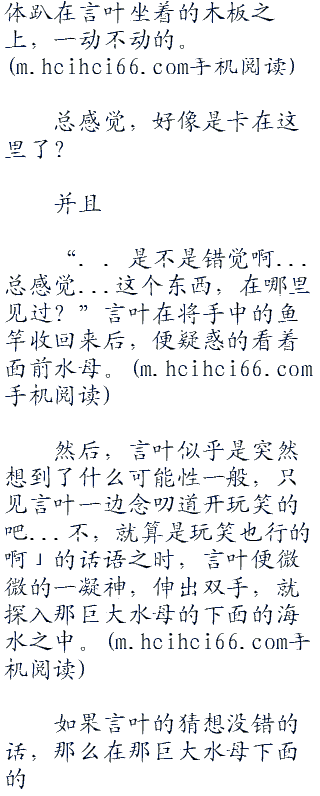 体趴在言叶坐着的木板之
上，一动不动的。
(m.hcihci66.com手机阅读)
总感觉，好像是卡在这
里了？
并且
“．．是不是错觉啊...
总感觉...这个东西，在哪里
见过？”言叶在将手中的鱼
竿收回来后，便疑惑的看着
面前水母。(m.hcihci66.com
手机阅读)
然后，言叶似乎是突然
想到了什么可能性一般，只
见言叶一边念叨道开玩笑的
吧...不，就算是玩笑也行的
啊」的话语之时，言叶便微
微的一凝神，伸出双手，就
探入那巨大水母的下面的海
水之中。(m.hcihci66.com手
机阅读)
如果言叶的猜想没错的
话，那么在那巨大水母下面
的